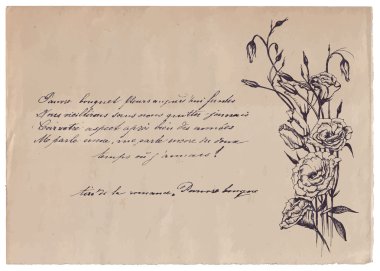 Pauvre bouquet fleurs aujourd'hui fanées
Vous vieillirez sans nous quitter jamais
Car votre aspect après bien des années
Me parle encore, me parle encore de doux
temps où j'aimais!
tiré de la romance. Pauvre bouquet